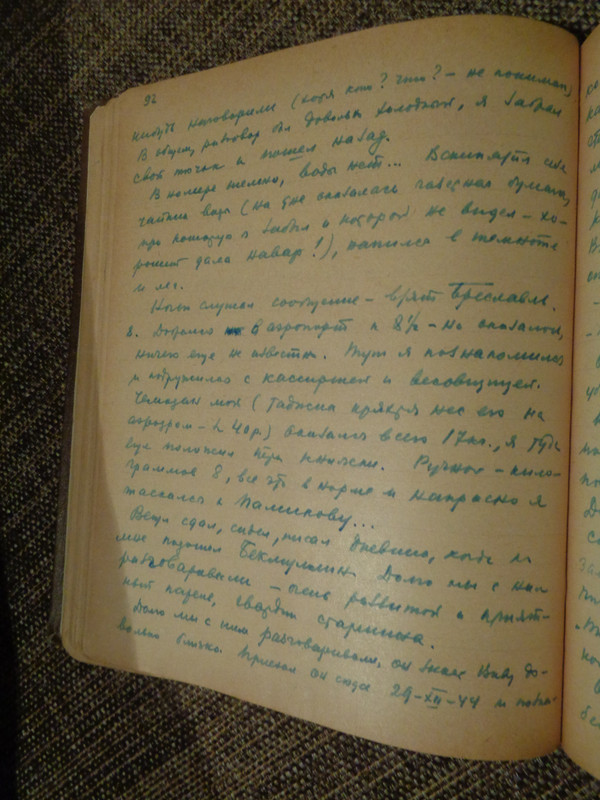 92
нибудь наговорили (хотя кто? что? – не понимаю)
В общем, разговор был довольно холодный, я забрал
свой тючок и пошел назад.
В номере темно, воды нет... Вскипятил себе
чайник воды (на дне оказалась чаверная бумага,
про которую я забыл и которой не видел – хо-
роший дала навар!), напился в темноте
и лег.
Ночью слушал сообщение – взят Бреславль.
8. Добрался в аэропорт к 8½ – но оказалось,
ничего еще не известно. Тут я познакомился
и подружился с кассиршей и весовщицей.
Чемодан мой (таджик кряхтя нес его на
аэродром – 40р) оказался всего 17кг., я туда
еще положил пару книжек. Ручное – кило-
граммов 8, все это в норме и напрасно я
таскался к Памикову...
Вещи сдал, сидел, писал дневник, когда ко
мне подошел Бекмулин. Долго мы с ним
разговаривали – очень развитой и прият-
ный парень, гвардии старшина.
Долго мы с ним разговаривали, он знает Киву до-
вольно близко. Приехал он сюда 29-XII-44 и позна-